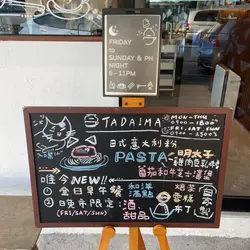 FRIDAY
TO
SUNDAY & PH
NIGHT
6-11PM
TADAIMA
MON-THU
0900-1800
FRI, SAT, SUN
0900-2300
日式意大利粉
PASTA-明太子
雞肉
番茄和牛芝士漢堡
NEW!!
① 全日早午餐
② 日晚市限定:酒.
(FRI/SAT/SUN)
甜品
和洋
酒點
焙茶
雪糕
布丁
自家製